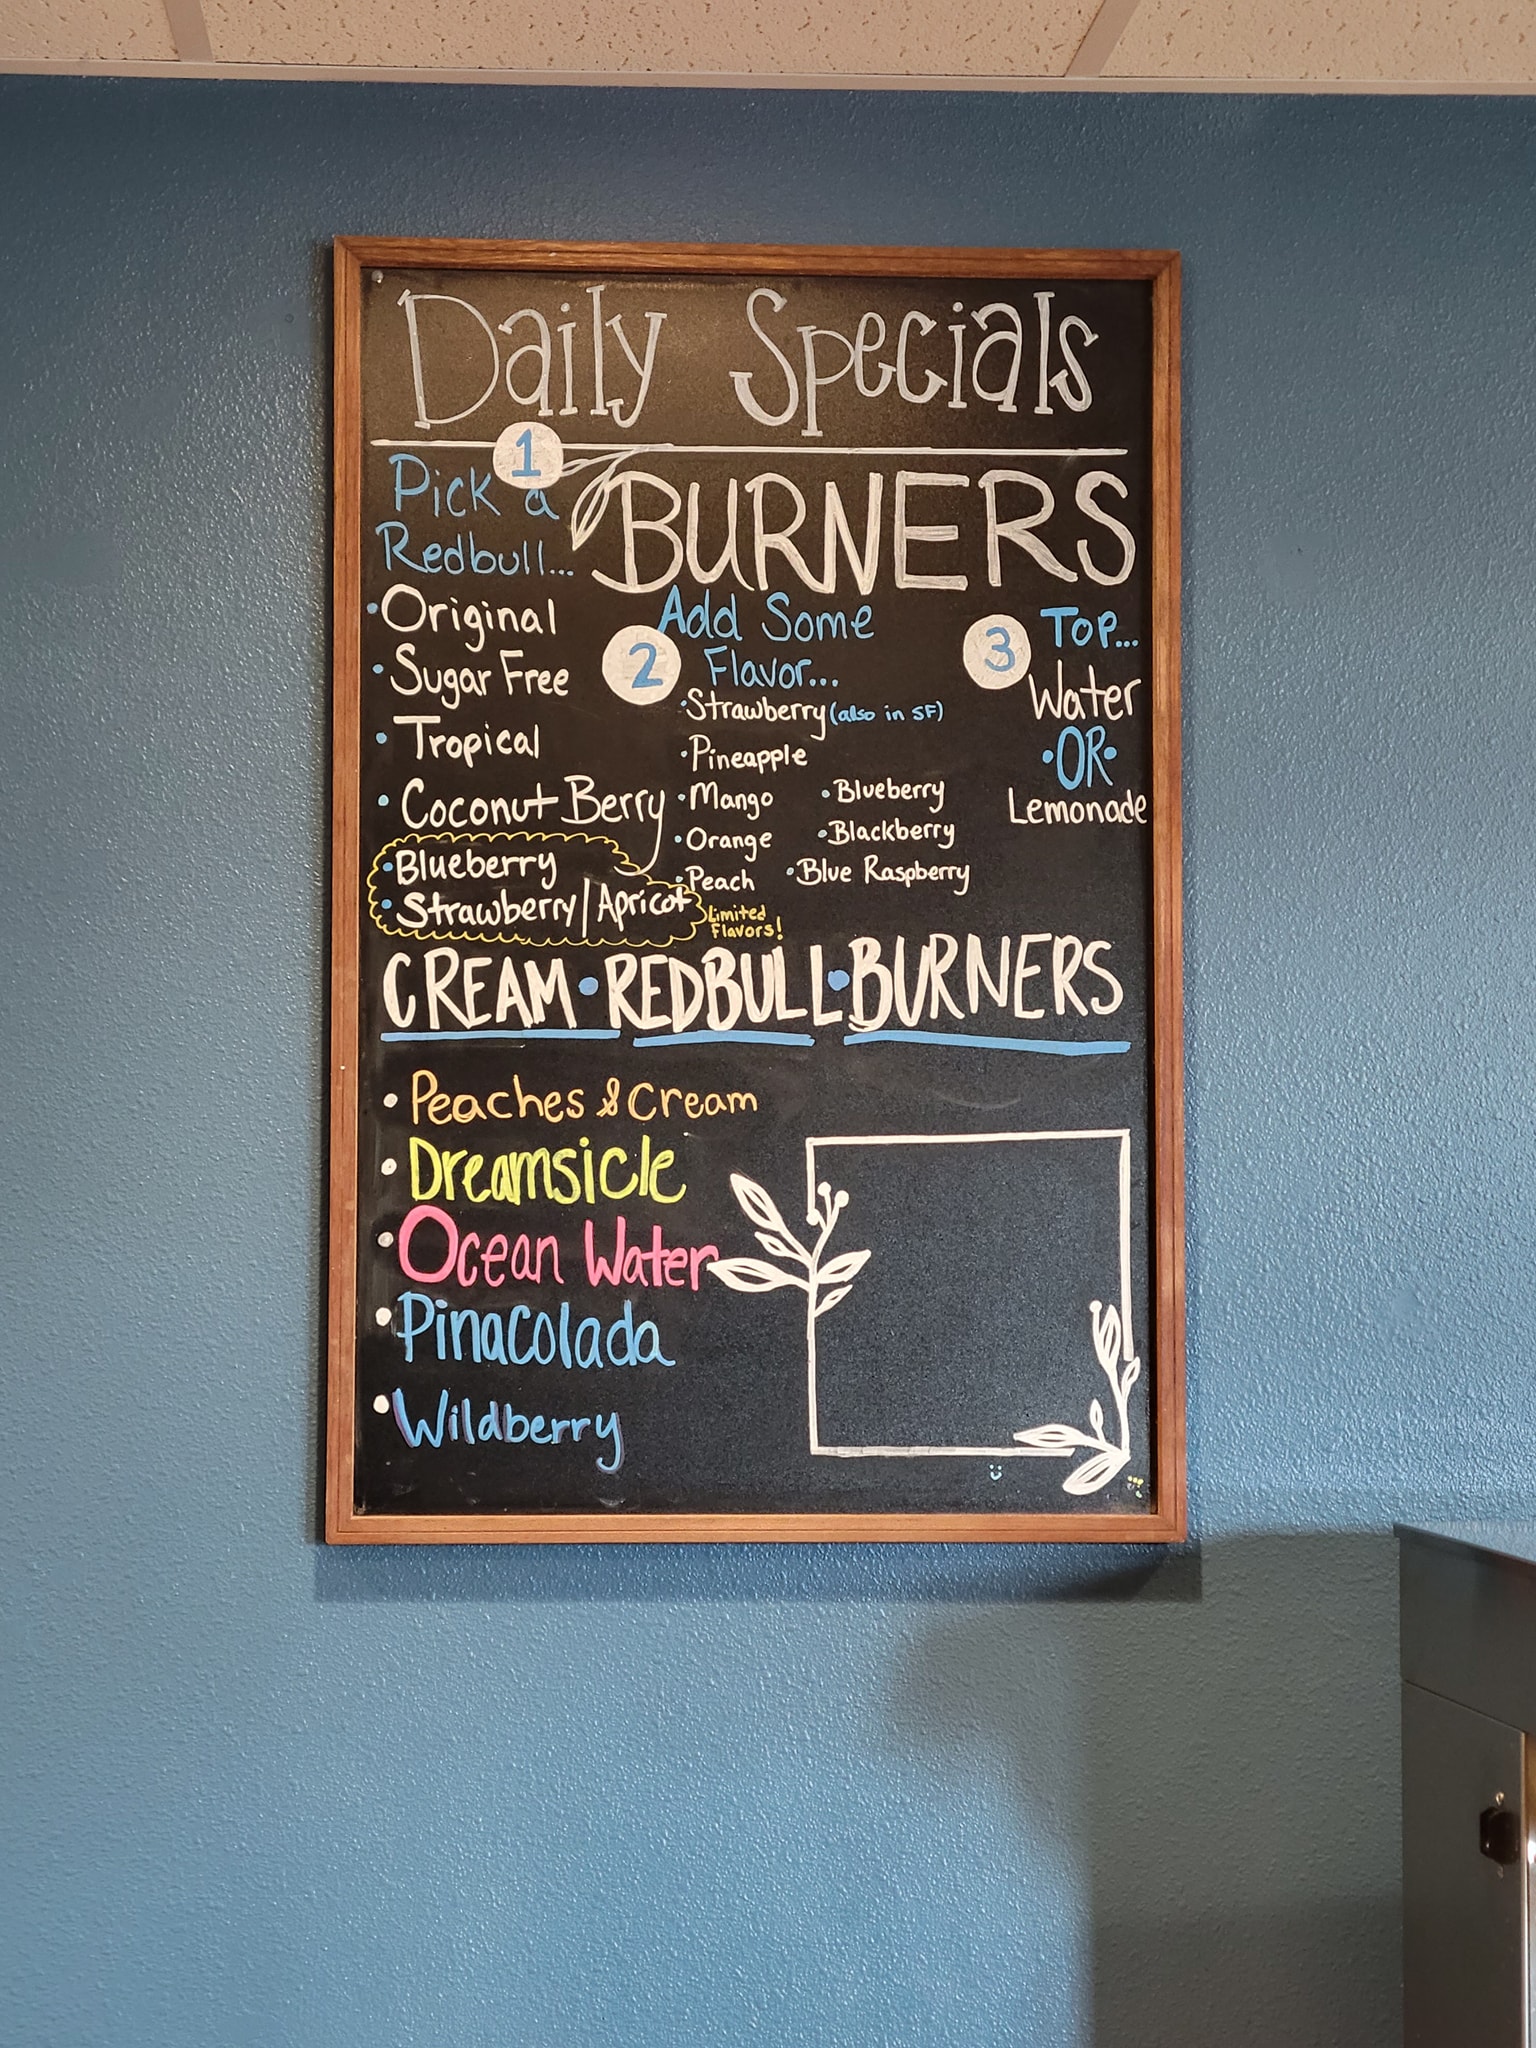 Daily Specials
1
Pick a
Redbull...
BURNERS
• Original
• Sugar Free
• Tropical
• Coconut Berry
• Blueberry
• Strawberry/Apricot
Limited
Flavors!
2
Add Some
Flavor...
• Strawberry (also in SF)
• Pineapple
• Mango
• Orange
• Peach
• Blueberry
• Blackberry
• Blue Raspberry
3
Top...
Water
• OR •
Lemonade
CREAM • REDBULL • BURNERS
• Peaches & Cream
• Dreamsicle
• Ocean Water
• Pinacolada
• Wildberry